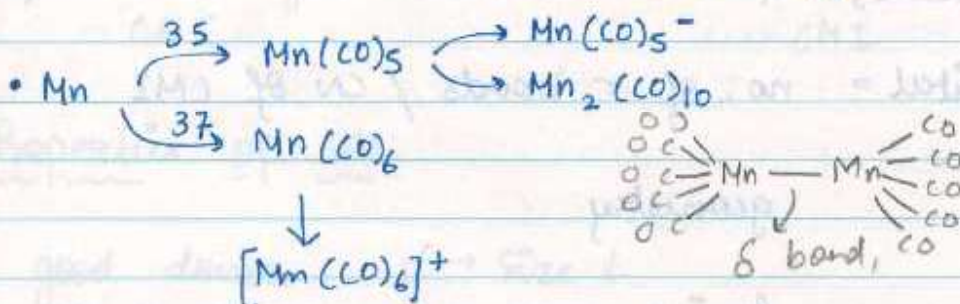 IMD
= no. of CN of CMI
• Mn 35 Mn(CO)5 Mn(CO)5-
Mn2(CO)10
37 Mn(CO)6
[Mn(CO)6]+
O O C O C O C O C O C Mn — Mn CO CO CO CO CO
δ bond,